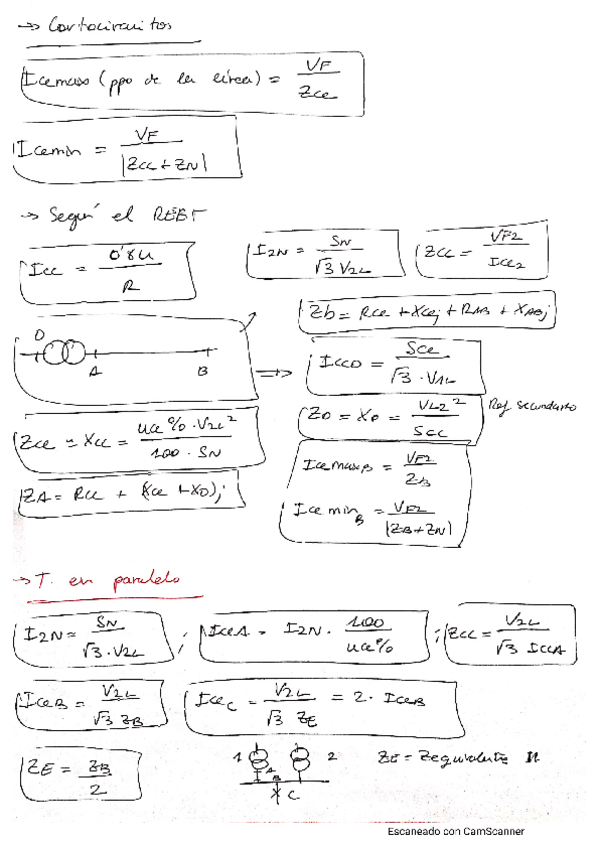 → Cortocircuitos
Iccmax (ppo de la línea) = VF / Zcc
Iccmin = VF / |Zcc + ZN|
→ Según el REBT
Icc = 0'8U / R
I2N = SN / √3 V2L
Zcc = VF2 / Icc2
Zb = Rcc + Xccj + RAB + XABj
O
A
B
⇒ IccO = Scc / √3 · V1L
Zcc ≃ Xcc = ucc% · V2L² / 100 · SN
Z0 = X0 = VL2² / Scc
Ref secundario
ZA = Rcc + (Xcc + X0)j
IccmaxB = VF2 / ZB
Icc minB = VF2 / |ZB + ZN|
→ T. en paralelo
I2N = SN / √3 · V2L ; IccA = I2N · 100 / ucc% ; Zcc = V2L / √3 IccA
IccB = V2L / √3 ZB
IccC = V2L / √3 ZE = 2 · IccB
ZE = ZB / 2
1
A
B
2
X C
ZE = Zequivalente
Escaneado con CamScanner